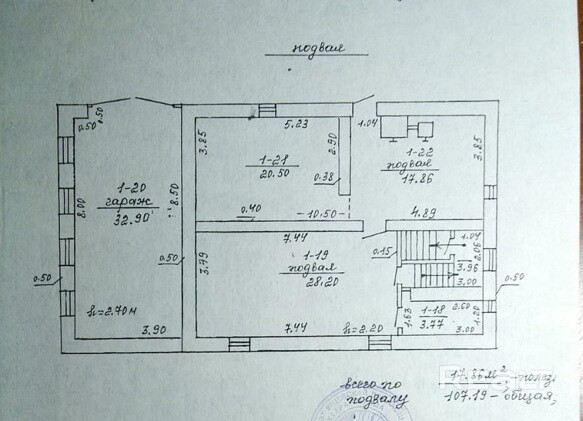 подвал
0.50
0.50
5.23
1.04
3.85
2.90
3.85
1-21
20.50
1-22
подвал
17.86
0.38
1-20
гараж
32.90
8.00
8.50
0.40
-10.50-
4.89
7.44
3.79
1-19
подвал
28.20
0.15
1.04
2.06
3.96
3.00
0.50
0.50
0.50
1.63
1-18
3.77
2.60
1.20
3.00
h=2.70м
3.90
7.44
h=2.20
всего по
подвалу
17.86м²
107.19 - общая,